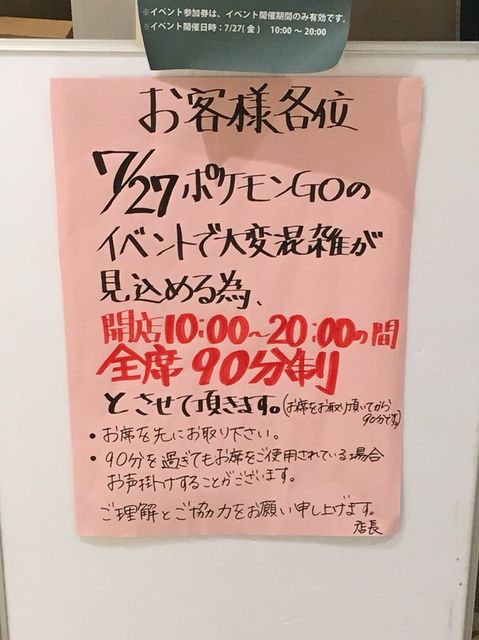 ※イベント参加券は、イベント開催期間のみ有効です。
※イベント開催日時：7/27(金) 10:00～20:00
お客様各位
7/27ポケモンGOの
イベントで大変混雑が
見込める為、
開店10:00～20:00の間
全席 90分制
とさせて頂きます。(お席をお取り頂いてから
90分です。)
・お席を先にお取り下さい。
・90分を過ぎてもお席をご使用されている場合
お声掛けすることがございます。
ご理解とご協力をお願い申し上げます。
店長